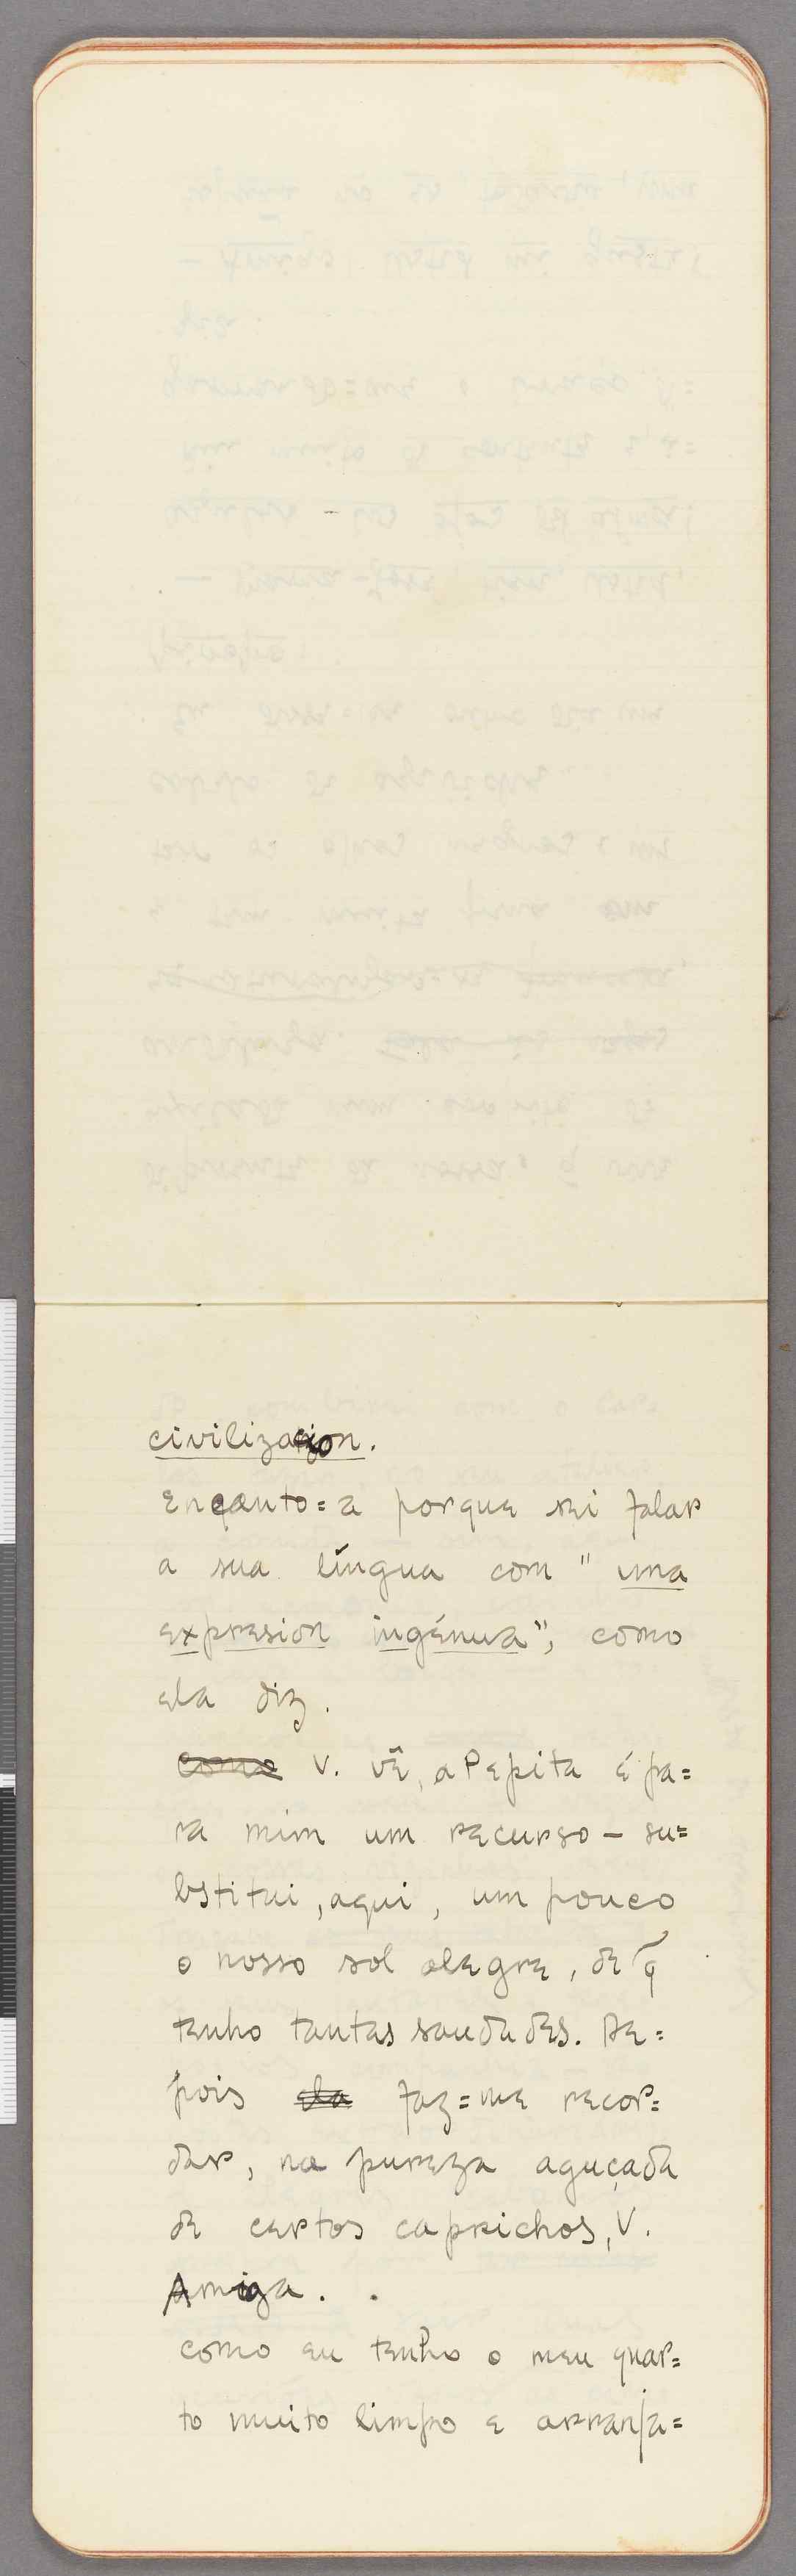 civilizacion.
Encanto=a porque sei falar
a sua língua com "uma
expresion ingénua", como
ela diz.
Como V. vê, a Pepita é pa=
ra mim um recurso – su=
bstitui, aqui, um pouco
o nosso sol alegre, de q̃
tenho tantas saudades. De=
pois ela faz=me recor=
dar, na pureza aguçada
de certos caprichos, V.
Amiga.
como eu tenho o meu quar=
to muito limpo e arranja=